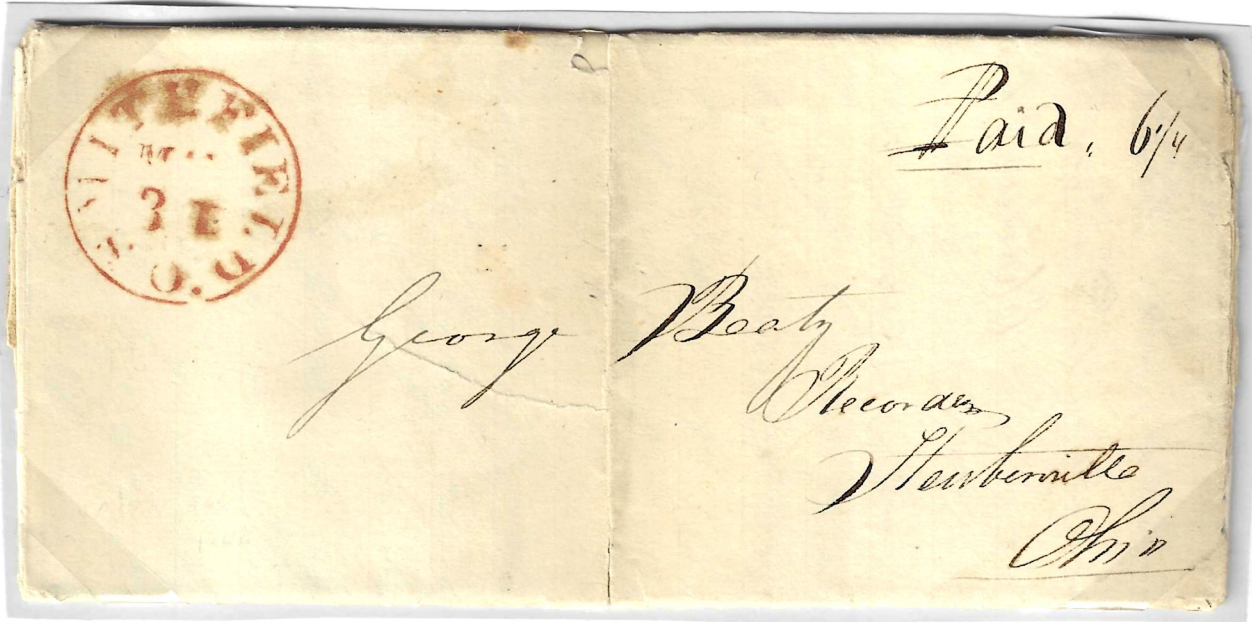 SMITHFIELD. O.
31
Paid. 6 1/4
George Beaty
Recorder
Steubenville
Ohio